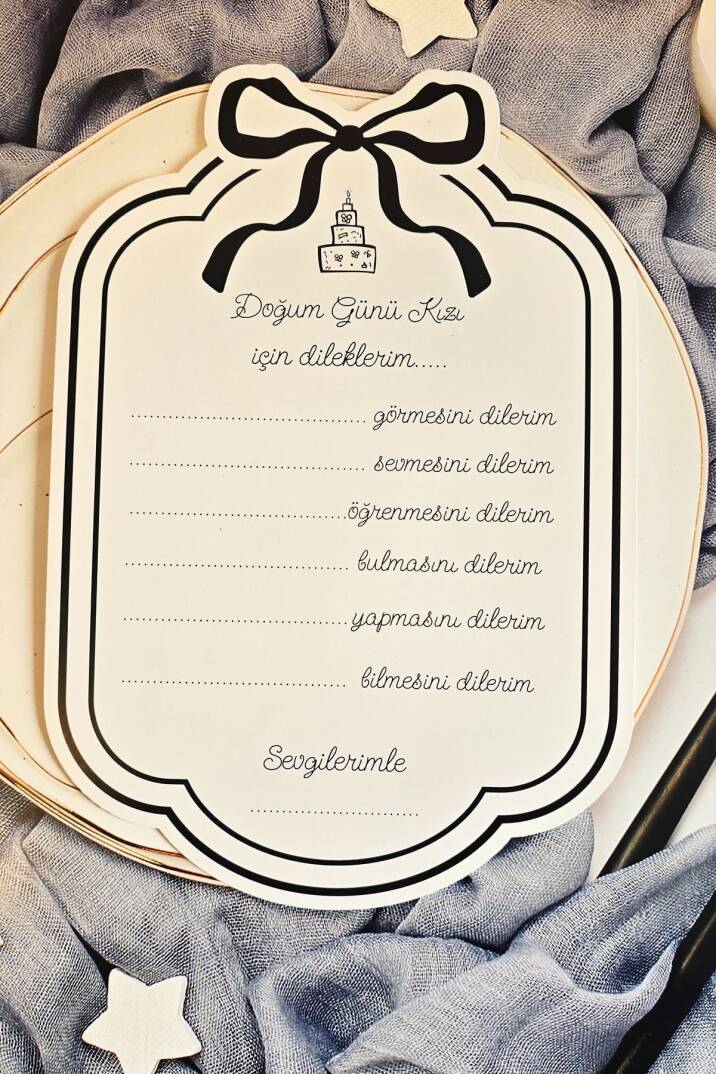 Doğum Günü Kızı
için dileklerim.....
.......................................... görmesini dilerim
.......................................... sevmesini dilerim
.......................................öğrenmesini dilerim
........................................ bulmasını dilerim
........................................yapmasını dilerim
........................................ bilmesini dilerim
Sevgilerimle
..............................